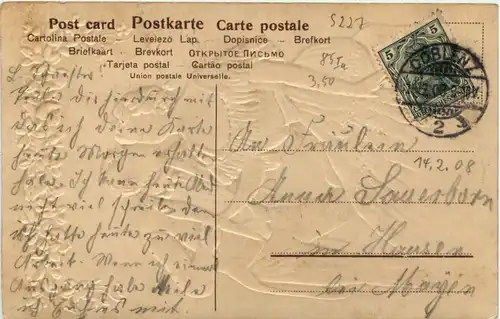 Post card Postkarte Carte postale
Cartolina Postale – Levelezö Lap. – Dopisnice – Brefkort
Briefkaart – Brevkort – ОТКРЫТОЕ ПИСЬМО
Tarjeta postal – Cartão postal
Union postale Universelle.
5227
3,50
5
5
2
14.2.08
Teile dir hierdurch mit
daß ich deine Karte
heute Morgen erhalten
habe. Ich kann heute
nicht viel schreiben den
ich hatte heute zu viel
Arbeit. Wenn ich einmal
Ausgang habe teile
ich mit.
An Fräulein
Anna
in Hausen
bei Mayen